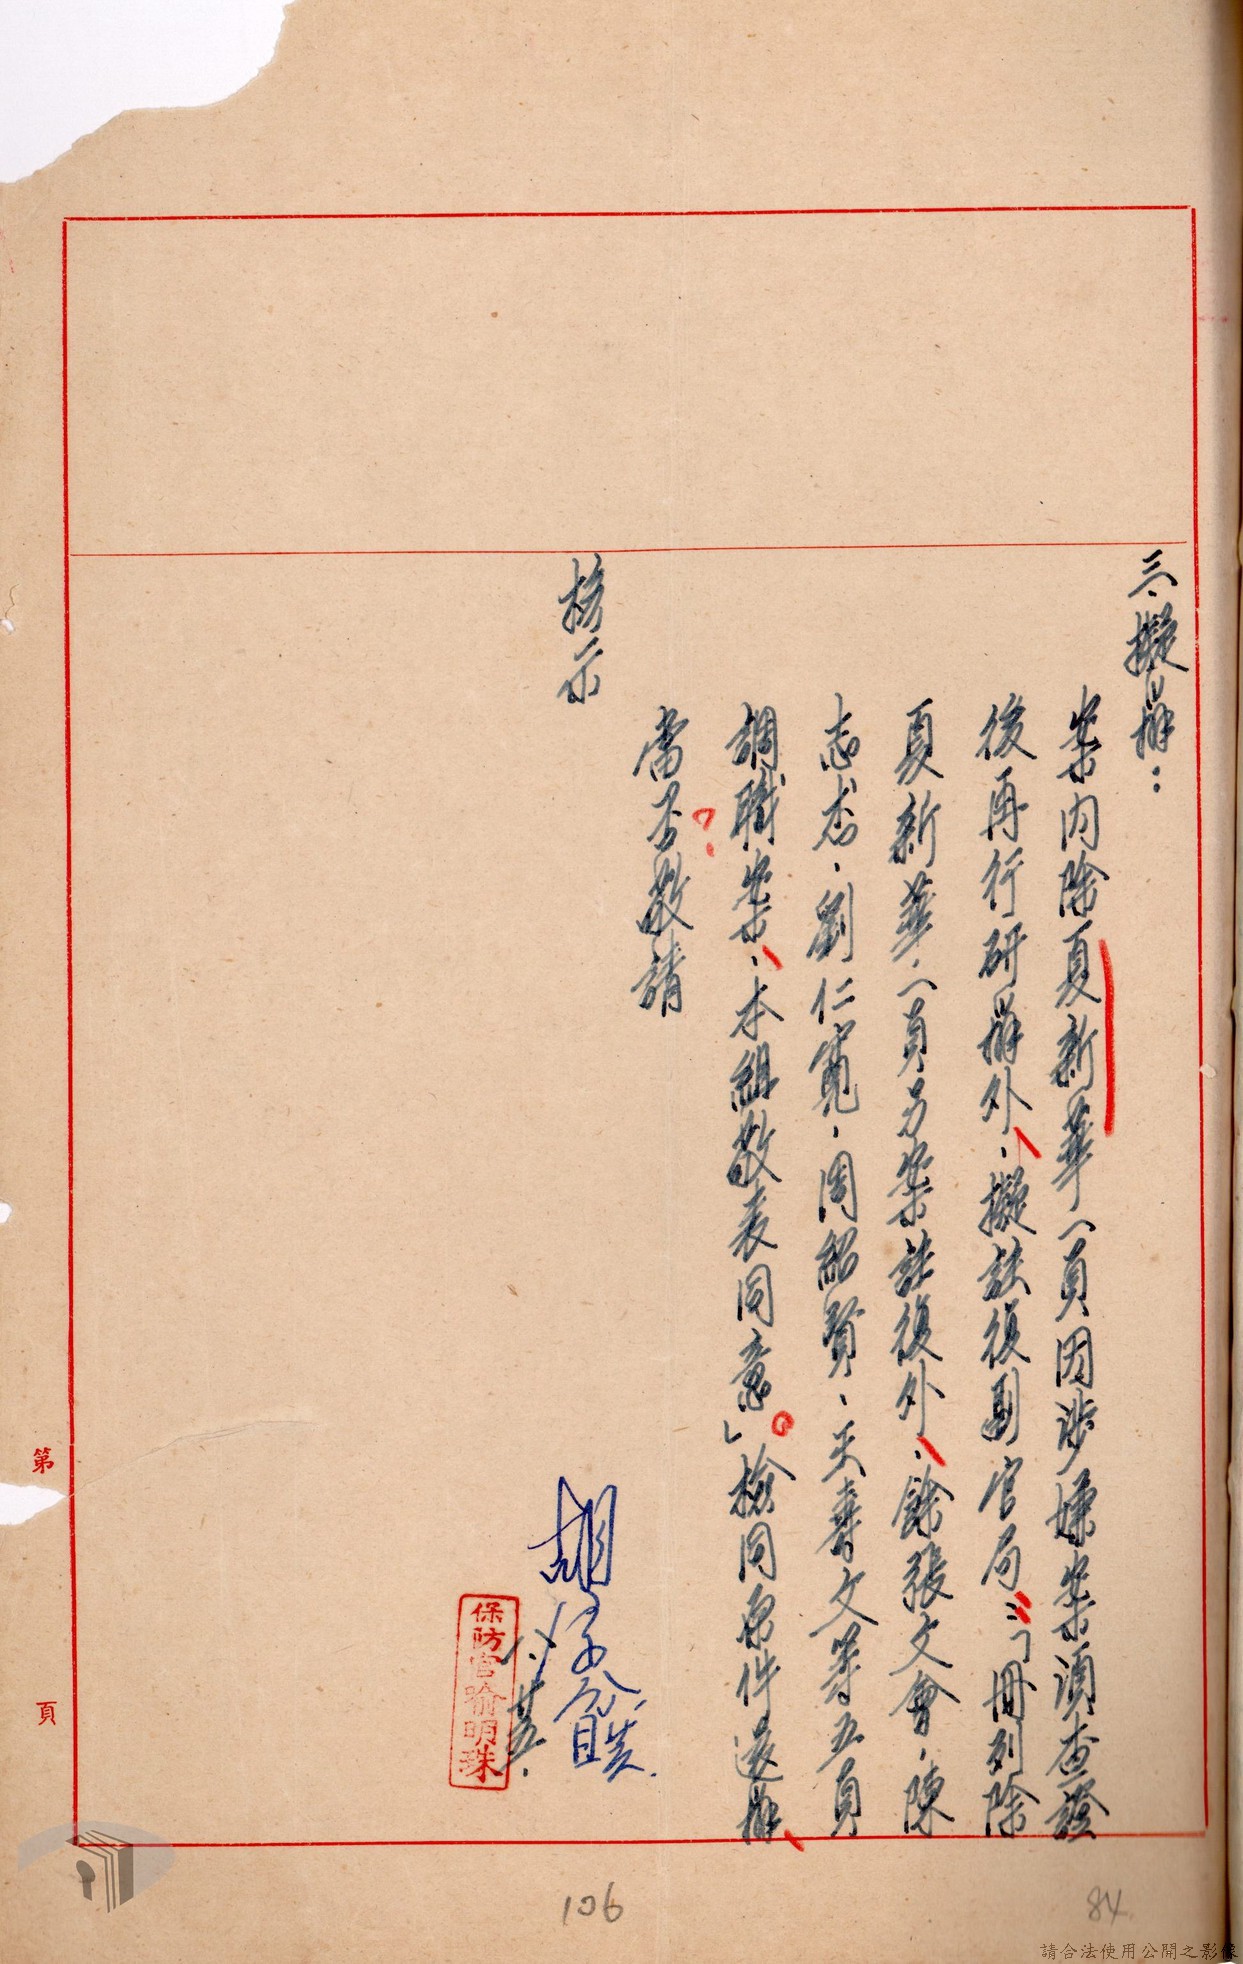 三、擬辦：
案內除夏新華一員因涉嫌案須查證
後再行研辦外、擬談復副官局：「冊列除
夏新華一員另案談復外、餘張文會、陳
志杰、劉仁寬、周紹賢、天壽文等五員
調職案、本組敬表同意」檢同原件還辦
當否敬請
核示
胡
保防官喻明珠
第
頁
106
84
請合法使用公開之影像